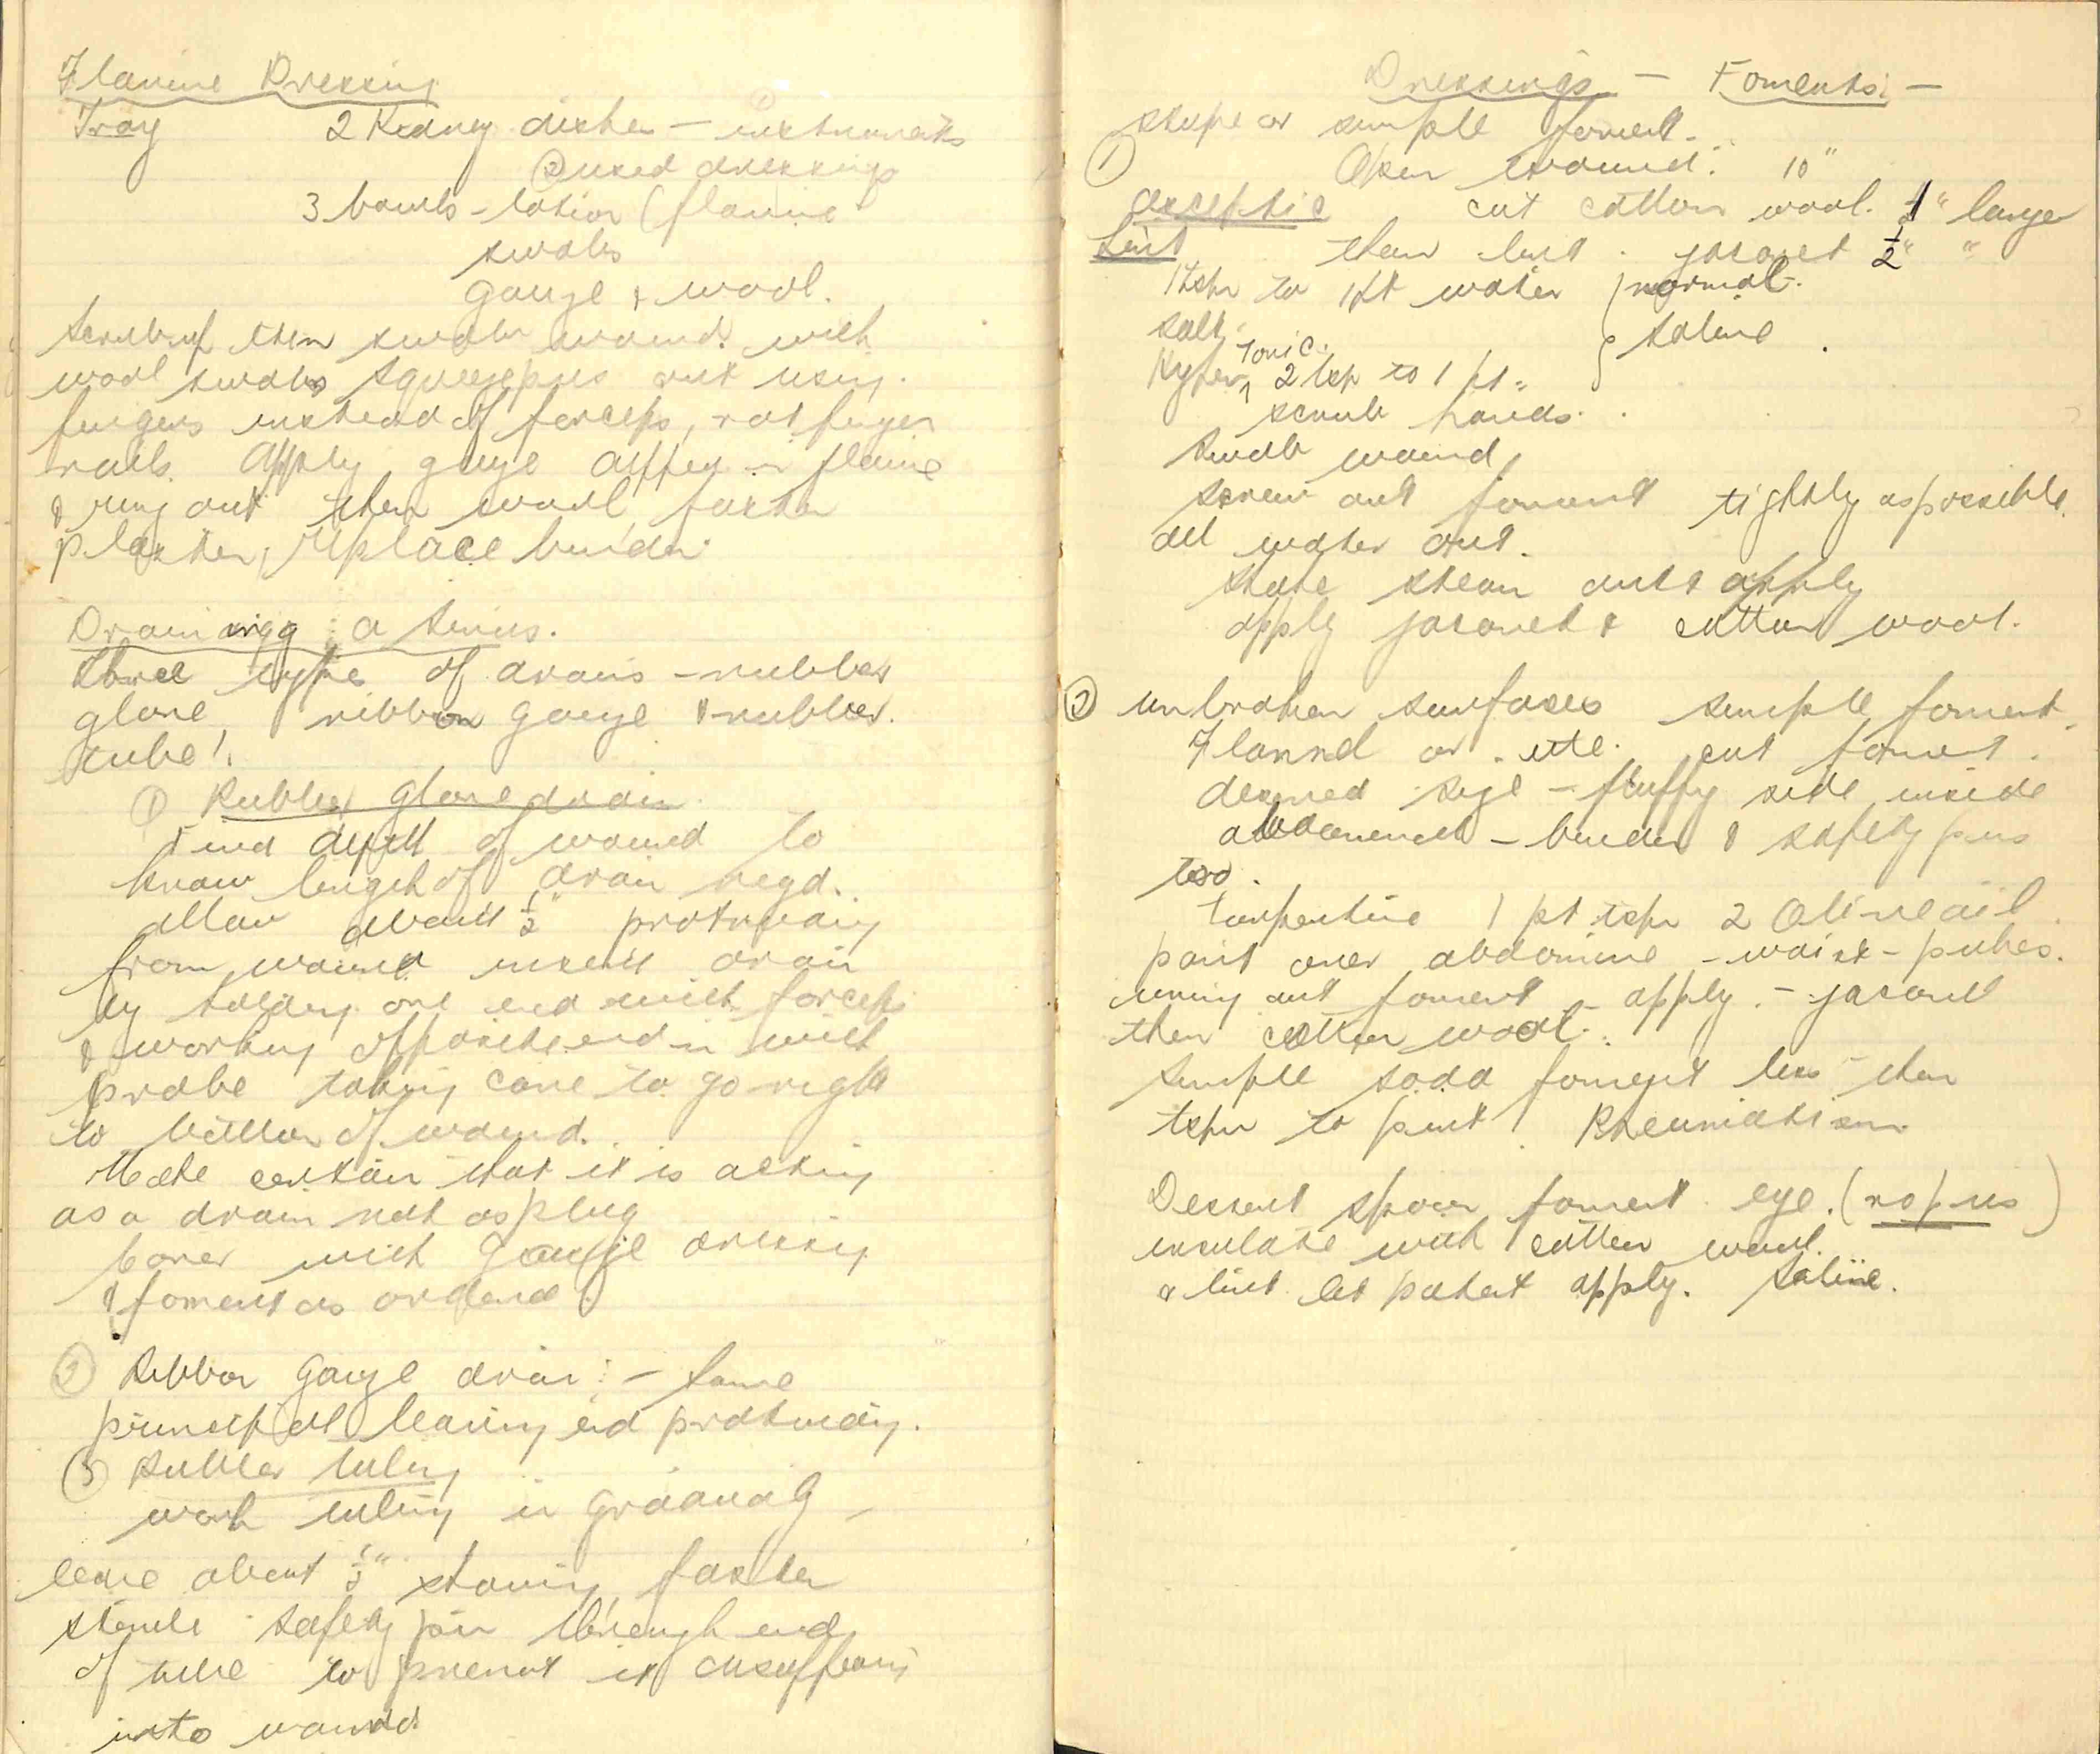 Flavine Dressing
Tray 2 Kidney dishes – ① instruments
② used dressings
3 bowls – lotion (flavine
swabs
gauze & wool.
Scrub up then swab wound with
wool swabs squeeze pus out using
fingers instead of forceps, not finger
nails. Apply gauze dipped in flavine
& rung out then wool, fasten
plaster, replace binder.
Draining a Sinus.
three type of drains – rubber
glove, ribbon gauze & rubber
tube!.
① Rubber glove drain.
Find depth of wound to
know length of drain reqd.
allow about ½" protruding
from wound insert drain
by holding one end with forceps
& working opposite end in with
probe taking care to go right
to bottom of wound.
Make certain that it is acting
as a drain not as plug
Cover with gauze dressing
& foment as ordered.
② Ribbon gauze drain: – same
principal leaving end protruding.
③ Rubber tubing
work tubing in gradually
leave about ½" showing, fasten
sterile safety pin through end
of tube to prevent it disappearing
into wound
Dressings – Foments: –
stupe or simple foment.
① Open wound. 10"
aseptic cut cotton wool. 1" large
Lint then lint. jaconet ½" "
1 tspn to 1 pt water } normal
salt. } saline.
Hypertonic. 2 tsp to 1 pt.
scrub hands.
Swab wound,
screw out foment tightly as possible.
all water out.
shake steam out & apply
apply jaconet & cotton wool.
② unbroken surfaces simple foment.
Flannel or cut foment.
desired size – fluffy side inside
abdomen – binder & safety pins
too.
Turpentine 1 pt tspn 2 Olive oil.
paint over abdomine – waist – pubes.
wring out foment – apply. – jaconet
then cotton wool.
Simple soda foment less then
tspn to pint. Rheumatism.
Dessert spoon foment eye. (no pus)
insulate with cotton wool.
& lint let patient apply. Saline.